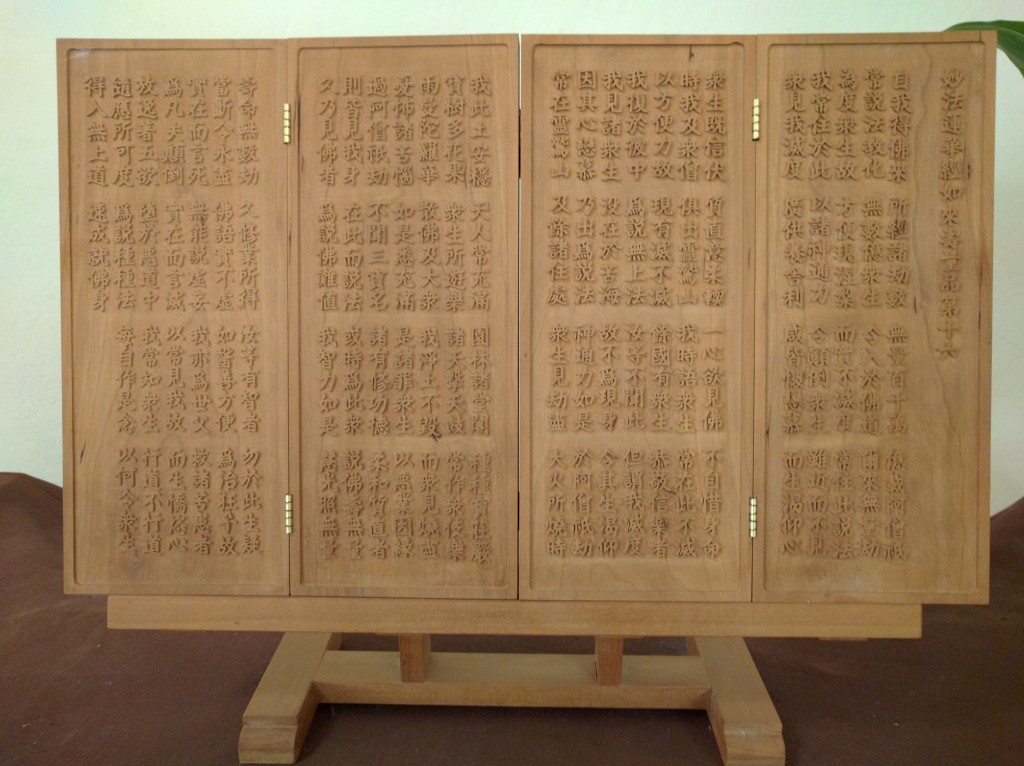 妙法蓮華經如來壽量品第十六
自我得佛來 所經諸劫數 無量百千萬 億載阿僧祇
常説法教化 無數億衆生 令入於佛道 爾來無量劫
為度衆生故 方便現涅槃 而實不滅度 常住此説法
我常住於此 以諸神通力 令顛倒衆生 雖近而不見
衆見我滅度 廣供養舍利 咸皆懷戀慕 而生渴仰心
衆生既信伏 質直意柔軟 一心欲見佛 不自惜身命
時我及衆僧 俱出靈鷲山 我時語衆生 常在此不滅
以方便力故 現有滅不滅 餘國有衆生 恭敬信樂者
我復於彼中 為説無上法 汝等不聞此 但謂我滅度
我見諸衆生 没在於苦海 故不為現身 令其生渴仰
因其心戀慕 乃出為説法 神通力如是 於阿僧祇劫
常在靈鷲山 及餘諸住處 衆生見劫盡 大火所燒時
我此土安穩 天人常充滿 園林諸堂閣 種種寶莊嚴
寶樹多花果 衆生所遊樂 諸天擊天鼓 常作衆伎樂
雨曼陀羅華 散佛及大衆 我淨土不毀 而衆見燒盡
憂怖諸苦惱 如是悉充滿 是諸罪衆生 以惡業因緣
過阿僧祇劫 不聞三寶名 諸有修功德 柔和質直者
則皆見我身 在此而説法 或時為此衆 説佛壽無量
久乃見佛者 為説佛難值 我智力如是 慧光照無量
壽命無數劫 久修業所得 汝等有智者 勿於此生疑
當斷令永盡 佛語實不虛 如醫善方便 為治狂子故
實在而言死 無能説虛妄 我亦為世父 救諸苦患者
為凡夫顛倒 實在而言滅 以常見我故 而生憍恣心
放逸著五欲 墮於惡道中 我常知衆生 行道不行道
隨應所可度 為説種種法 每自作是念 以何令衆生
得入無上道 速成就佛身